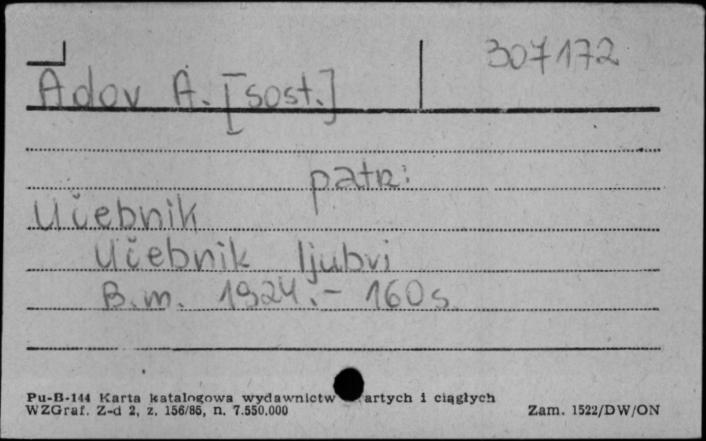 307172
Adov A. [sost.]
patrz:
Učebnik
Učebnik ljubvi
B.m. 1924.- 160 s.
Pu-B-144 Karta katalogowa wydawnictw artych i ciągłych
WZGraf. Z-d 2, z. 156/85, n. 7.550.000
Zam. 1522/DW/ON